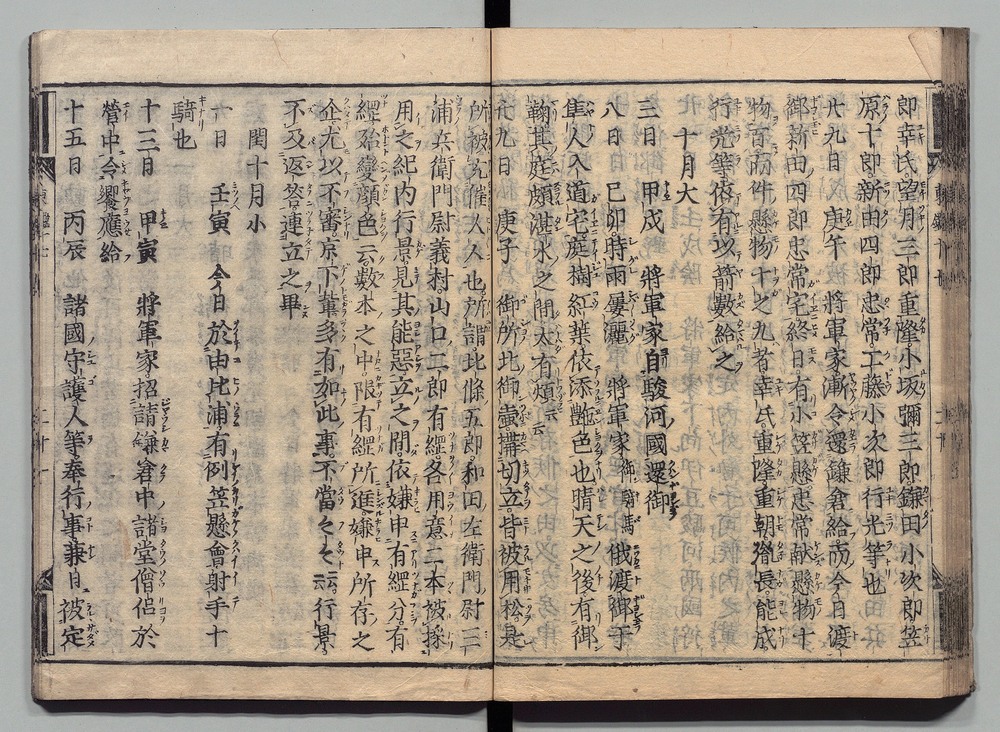 郎幸氏望月三郎重隆小坂彌三郎鎌田小次郎笠
原十郎新田四郎忠常工藤小次郎行光等也
廿九日　庚午　將軍家漸令還鎌倉給而今日渡
御新田四郎忠常宅終日有小笠懸忠常献懸物十
物百兩件懸物十之九者幸氏重隆重朝㝡長能成
行光等依有以箭數給之
十月大
三日　甲戌　將軍家自駿河國還御
八日　己卯時雨屢灑　將軍家御騎馬俄渡御于
隼人入道宅庭樹紅葉依添艶色也晴天之後有御
鞠其庭頗洪水之間太有煩云云
廿九日　庚子　御所北御壷搆切立皆被用松是
所被宛催人人也所謂比條五郎和田左衛門尉三
浦兵衛門尉義村山口二郎有綱各用意二本被採
用之紀内行景見其能惡立之間依嫌申有綱分有
綱殆變顔色云云數本之中限有綱所進嫌申所存之
企尤以不審京下輩多有如此事不當々々云云行景
不及返答連立之畢
閏十月小
一日　壬寅　今日於由比浦有例笠懸會射手十
騎也
十三日　甲寅　將軍家招請鎌倉中諸堂僧侣於
營中令饗應給
十五日　丙辰　諸國守護人等奉行事兼日被定